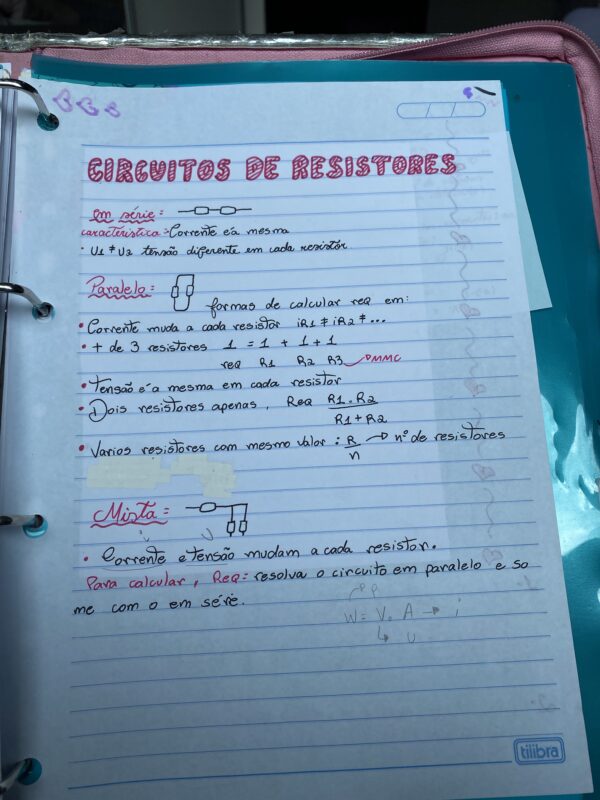 CIRCUITOS DE RESISTORES
em série:
característica: Corrente é a mesma
• U1 ≠ U2 tensão diferente em cada resistor
Paralelo:
formas de calcular req em:
• Corrente muda a cada resistor iR1 ≠ iR2 ≠ ...
• + de 3 resistores 1 = 1 + 1 + 1
req R1 R2 R3 → MMC
• Tensão é a mesma em cada resistor
• Dois resistores apenas, Req R1 . R2
R1 + R2
• Varios resistores com mesmo valor : R → nº de resistores
n
Mista:
• Corrente e tensão mudam a cada resistor.
Para calcular, Req = resolva o circuito em paralelo e so
me com o em série.
P
W = V . A → i
↳ U
tilibra